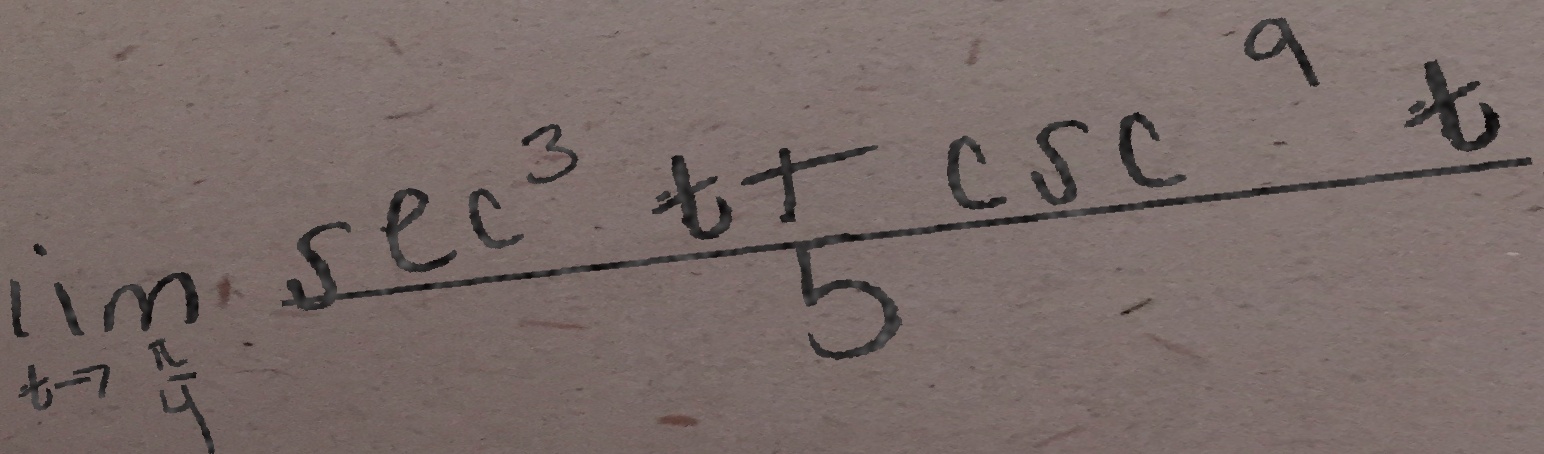 \lim_{t \to \frac{\pi}{4}} \frac{\sec^3 t + \csc^9 t}{5}